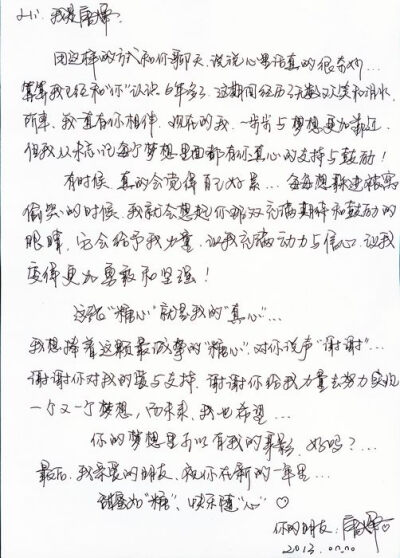 Hi, 我是唐嫣.
用这样的方式和你聊天, 说说心里话真的很奇妙...
算算我已经和"你"认识6年多了, 这期间经历了无数欢笑和泪水,
所幸, 我一直有你相伴, 现在的我, 一步步与梦想更加靠近,
但我从未忘记每个梦想里面都有你真心的支持与鼓励!
有时候, 真的会觉得自己好累... 每每想躲进被窝
偷哭的时候, 我就会想起你那双充满期待和鼓励的
眼睛, 它会给予我力量, 让我充满动力与信心, 让我
变得更加勇敢和坚强!
这颗"糖心"就是我的"真心"...
我想捧着这颗最诚挚的"糖心", 对你说声"谢谢"...
谢谢你对我的爱与支持, 谢谢你给我力量去努力实现
一个又一个梦想, 而未来, 我也希望...
你的梦想里可以有我的身影, 好吗?...
最后, 我亲爱的朋友, 祝你在新的一年里...
甜蜜如"糖", 快乐随"心"♡
你的朋友: 唐嫣
2013.